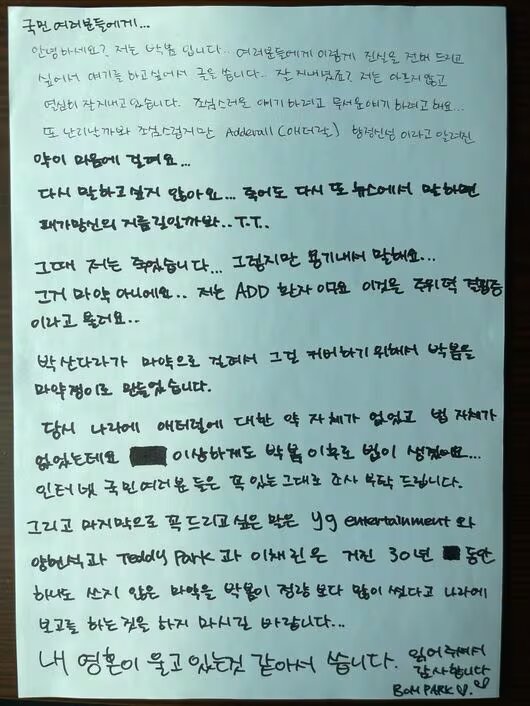 국민 여러분들에게...
안녕하세요? 저는 박봄 입니다.. 여러분들에게 이렇게 진실을 전해 드리고
싶어서 얘기를 하고싶어서 글을 씁니다. 잘 지내셨죠? 저는 아프지 않고
열심히 잘지내고 있습니다. 조심스러운 얘기하려고 무서운얘기 하려고 해요...
또 난리날까봐 조심스럽지만 Adderall (애더랄) 향정신성 이라고 알려진
약이 마음에 걸려요...
다시 말하고싶지 않아요... 죽어도 다시 또 뉴스에서 말하면
패가망신의 지름길일까봐..T.T..
그때 저는 죽었습니다... 그렇지만 용기내서 말해요...
그거 마약 아니에요.. 저는 ADD 환자 이구요 이것을 주위력 결핍증
이라고 불러요..
박산다라가 마약으로 걸려서 그걸 커버하기 위해서 박봄을
마약쟁이로 만들었습니다.
당시 나라에 애터럴에 대한 약 자체가 없었고 법 자체가
없었는데요 이상하게도 박봄 이후로 법이 생겼어요...
인터넷 국민여러분 들은 꼭 있는 그대로 조사 부탁 드립니다.
그리고 마지막으로 꼭 드리고싶은 말은 yg entertainment 와
양현석과 Teddy Park 과 이채린은 거진 30년 동안
하나도 쓰지 않은 마약을 박봄이 정량 보다 많이 썼다고 나라에
보고를 하는것을 하지 마시길 바랍니다...
내 영혼이 울고 있는것 같아서 씁니다. 읽어주셔서
감사합니다
BOM PARK♡.♡